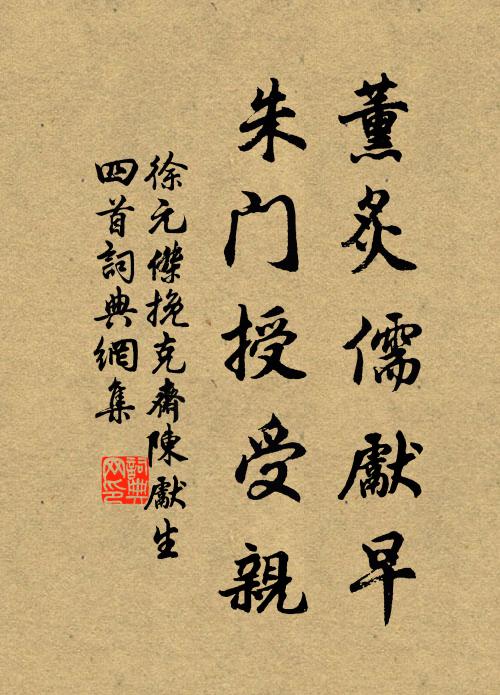 董炙儒獻早
朱门授受親
徐元傑挽克齋陳獻生
四首詞典網集
詞典网印